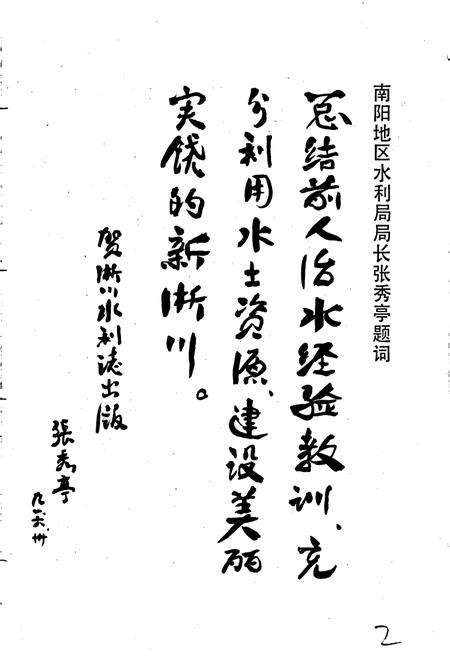 南阳地区水利局局长张秀亭题词
总结前人治水经验教训、充
分利用水土资源、建设美丽
富饶的新淅川。
贺淅川水利誌出版
張秀亭
2